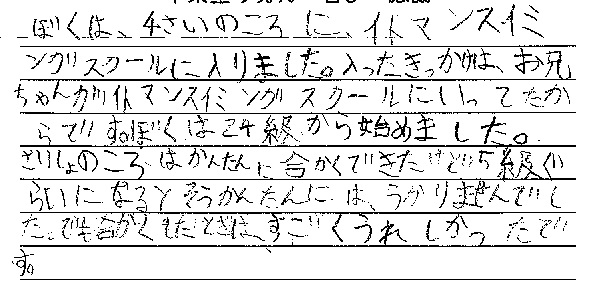 ぼくは、4さいのころに、イトマンスイミ
ングスクールに入りました。入ったきっかけは、お兄
ちゃんがイトマンスイミングスクールにいってたか
らです。ぼくは24級から始めました。
さいしょのころはかんたんに合かくできたけど5級ぐ
らいになるとそうかんたんには、うかりませんでし
た。でも合かくしたときは、すごくうれしかったで
す。